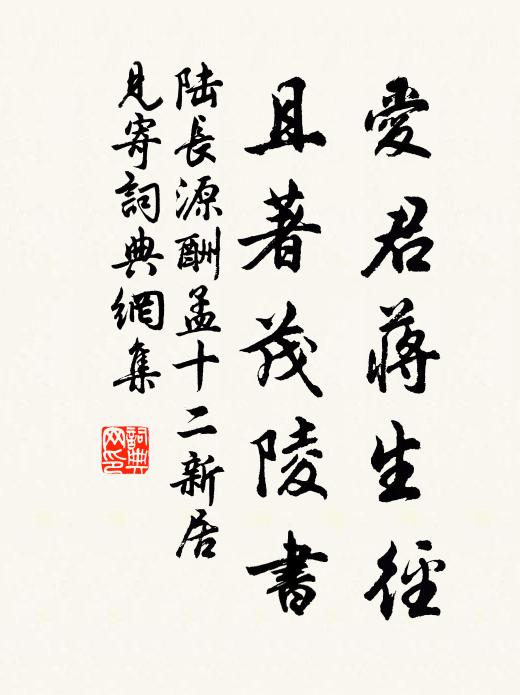 愛君蔣生徑
且著茂陵書
陸長源酬孟十二新居
見寄詞典網集
詞典
网印